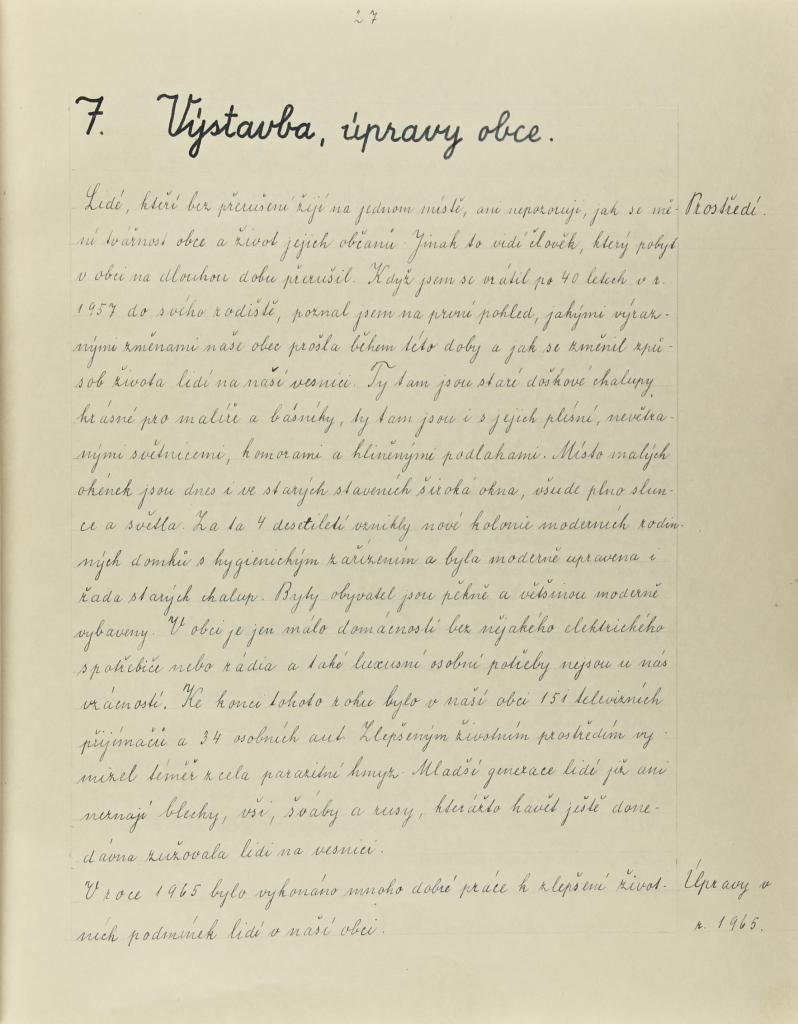 27
7. Výstavba, úpravy obce.
Lidé, kteří bez přerušení žijí na jednom místě, ani nepozorují, jak se mě-
Prostředí.
ní tvářnost obce a život jejich občanů. Jinak to vidí člověk, který pobyt
v obci na dlouhou dobu přerušil. Když jsem se vrátil po 40 letech v r.
1957 do svého rodiště, poznal jsem na první pohled, jakými výraz-
nými změnami naše obec prošla během této doby a jak se změnil způ-
sob života lidí na naší vesnici. Ty tam jsou staré doškové chalupy,
krásné pro malíře a básníky, ty tam jsou i s jejich plísní, nevětra-
nými světnicemi, komorami a hliněnými podlahami. Místo malých
okének jsou dnes i ve starých staveních široká okna, všude plno slun-
ce a světla. Za ta 4 desetiletí vznikly nové kolonie moderních rodin-
ných domků s hygienickým zařízením a byla moderně upravena i
řada starých chalup. Byty obyvatel jsou pěkně a většinou moderně
vybaveny. V obci je jen málo domácností bez nějakého elektrického
spotřebiče nebo rádia a také luxusní osobní potřeby nejsou u nás
vzácností. Ke konci tohoto roku bylo v naší obci 151 televizních
přijímačů a 34 osobních aut. Zlepšeným životním prostředím vy-
mizel téměř zcela parazitní hmyz. Mladší generace lidí již ani
neznají blechy, vši, šváby a rusy, kterážto havěť ještě done-
dávna zužovala lidi na vesnici.
V roce 1965 bylo vykonáno mnoho dobré práce k zlepšení život-
Úpravy v
ních podmínek lidí v naší obci.
r. 1965.